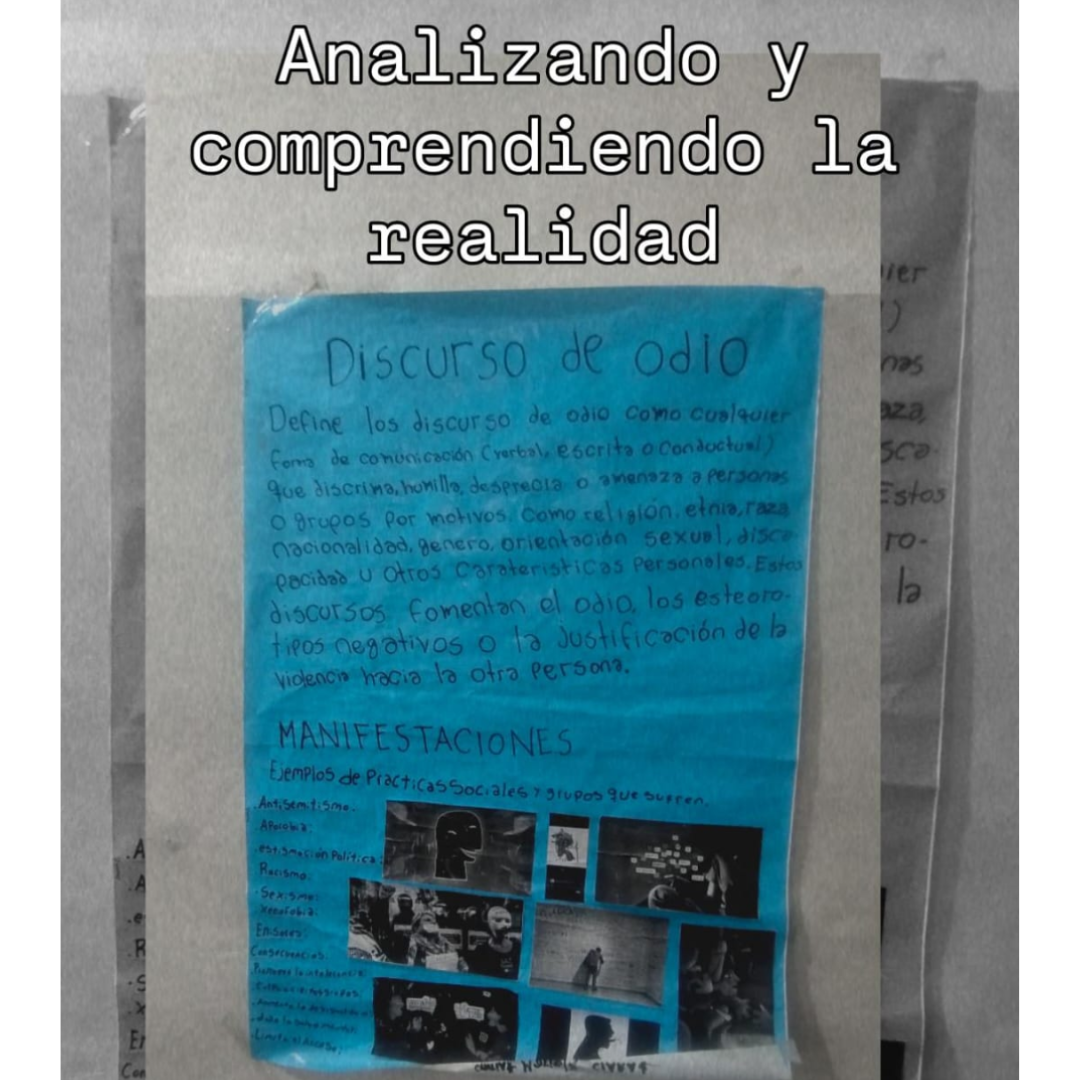 Analizando y
comprendiendo la
realidad
Discurso de odio
Define los discurso de odio como cualquier
forma de comunicación (verbal, escrita o conductual)
que discrima, humilla, desprecia o amenaza a personas
o grupos por motivos. Como religión, etnia, raza
nacionalidad, genero, orientación sexual, disca-
pacidad u otros Carateristicas Personales. Estos
discursos fomentan el odio, los esteoro-
tipos negativos o la Justificación de la
violencia hacia la otra Persona.
MANIFESTACIONES
Ejemplos de Practicas Sociales y grupos que sufren.
.Antisemitismo.
Política
Racismo.
.Sexismo.
xenofobia.
Consecuencias:
ier
)
nas
aza,
sca-
Estos
ro-
la
.A
.A
.e
R
.S
.x
En
Con